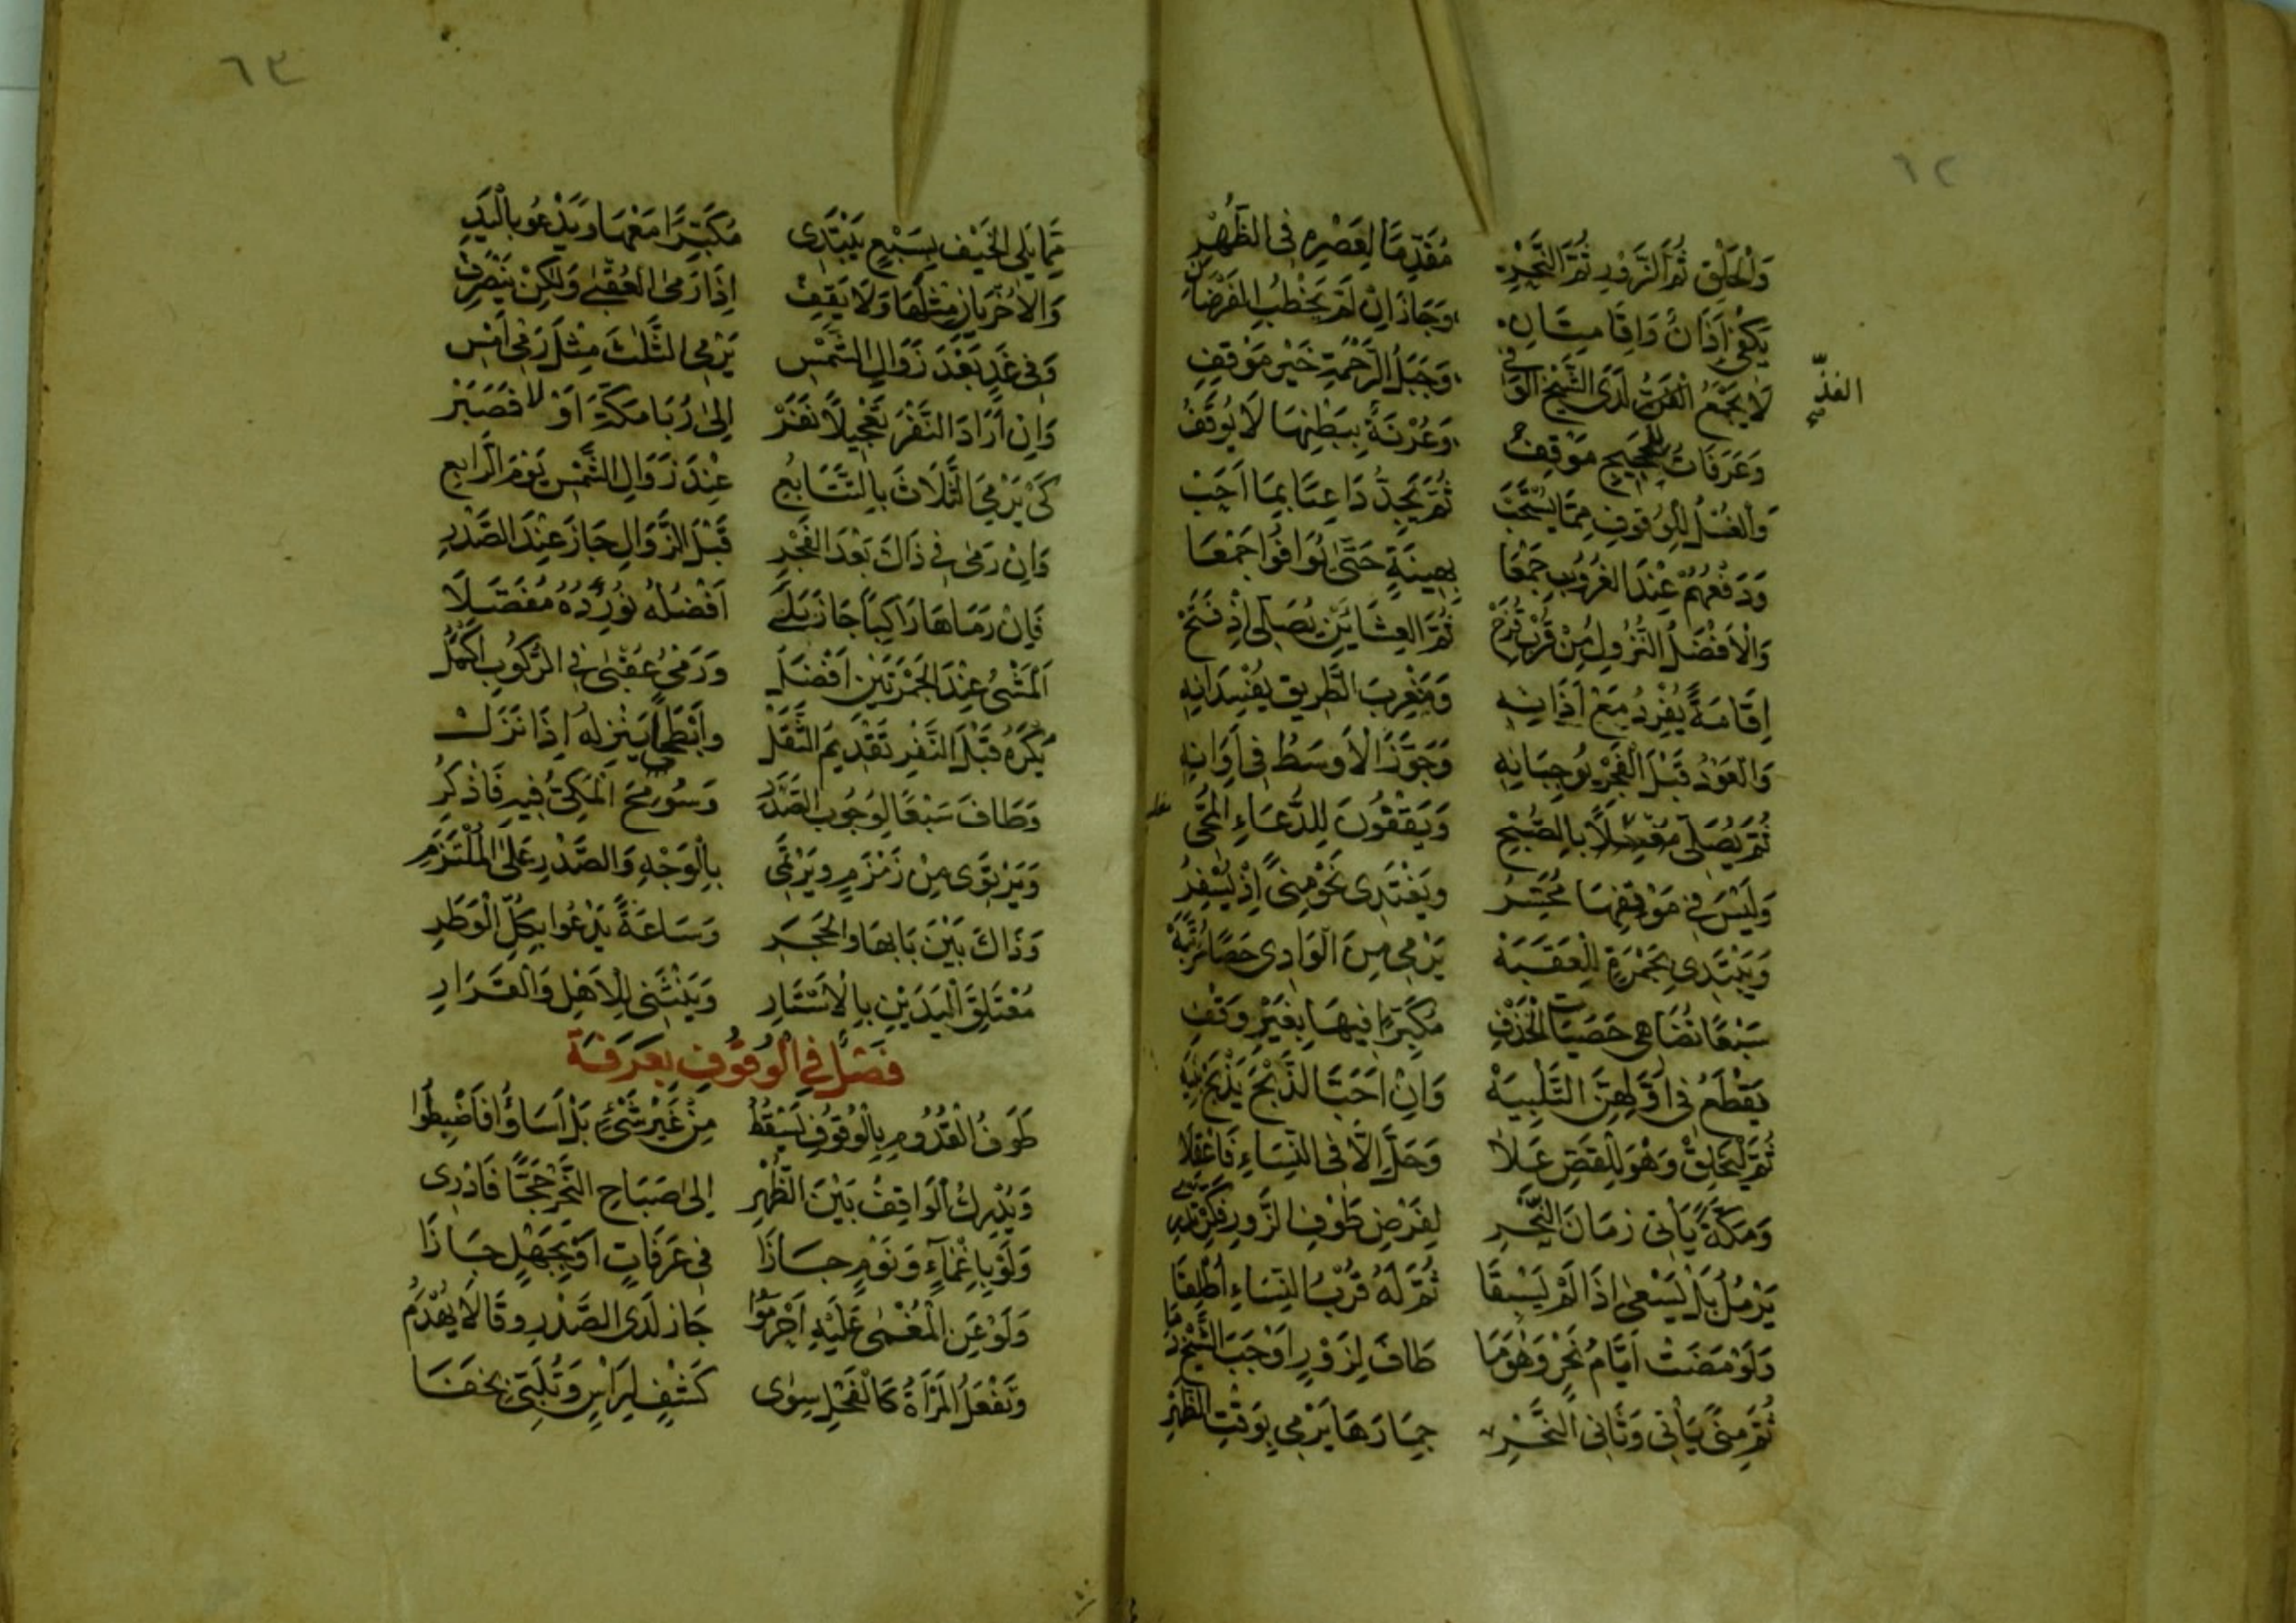 ٦٢
وَالْحَلْقِ ثُمَّ الزَّوْرِ ثُمَّ النَّحْرِ مُقَدِّمًا لِعَصْرِهِ فِي الظُّهْرِ
يَكْفِي أَذَانٌ وَإِقَامَتَانِ وَجَازَ إِنْ لَمْ يَخْطُبِ
لَا يَجْمَعُ الْفَذُّ لَدَى الشَّيْخِ الْوَفِي وَجَبَلُ الرَّحْمَةِ خَيْرُ مَوْقِفِ
الفذّ
وَعَرَفَاتُ لِلْحَجِيجِ مَوْقِفُ وَعُرْنَةٌ بِبَطْنِهَا لَا يُوقَفُ
وَالْغُسْلُ لِلْوُقُوفِ مِمَّا يُسْتَحَبْ ثُمَّ يَجِدُّ دَاعِيًا بِمَا أَحَبْ
وَدَفْعُهُمْ عِنْدَ الْغُرُوبِ جَمْعَا بِهِينَةٍ حَتَّى يُوَافُوا جَمْعَا
وَالْأَفْضَلُ النُّزُولُ مِنْ قُرْبِ قُزَحْ ثُمَّ الْعِشَائَيْنِ يُصَلِّي إِذْ
إِقَامَةً يُفْرِدُ مَعْ أَذَانِهِ وَمَغْرِبَ الطَّرِيقِ يُفْسِدَانِهِ
وَالْعَوْدُ قَبْلَ الْفَجْرِ يُوجِبَانِهِ وَجَوَّزَ الْأَوْسَطُ فِي أَوَانِهِ
ثُمَّ يُصَلِّي مُغَلِّسًا بِالصُّبْحِ وَيَقِفُونَ لِلدُّعَاءِ
وَلَيْسَ فِي مَوْقِفِهَا مُحَسِّرُ وَيَغْتَدِي نَحْوَ مِنًى إِذْ يُسْفِرُ
وَيَبْتَدِي بِجَمْرَةٍ لِلْعَقَبَهْ يَرْمِي مِنَ الْوَادِي حَصًا
سَبْعًا تُضَاهِي حَصَيَاتِ الْخَذْفِ مُكَبِّرًا فِيهَا بِغَيْرِ وَقْفِ
يَقْطَعُ فِي أَوَّلِهِنَّ التَّلْبِيَهْ وَإِنْ أَحَبَّ الذَّبْحَ يَذْبَحْ
ثُمَّ لْيَحْلِقْ وَهْوَ لِلْقَصِّ عَلَا وَحَلَّ إِلَّا فِي النِّسَاءِ فَاعْقِلَا
وَمَكَّةً يَأْتِي زَمَانَ النَّحْرِ لِفَرْضِ طَوْفِ الزَّوْرِ
يَرْمُلُ بَلْ يَسْعَى إِذَا لَمْ يَسْبِقَا ثُمَّ لَهُ قُرْبُ النِّسَاءِ أُطْلِقَا
وَلَوْ مَضَتْ أَيَّامُ نَحْرٍ وَهْوَ مَا طَافَ لِزَوْرٍ أَوْجَبَ الشَّيْخُ دَمَا
ثُمَّ مِنًى يَأْتِي وَثَانِي النَّحْرِ جِمَارَهَا يَرْمِي بِوَقْتِ الظُّهْرِ
٦٣
مِمَّا يَلِي الْخَيْفَ بِسَبْعٍ يَبْتَدِي مُكَبِّرًا مَعْهَا وَيَدْعُو بِالْيَدِ
وَالْأُخْرَيَانِ مِثْلَهَا وَلَا يَقِفْ إِذَا رَمَى الْعُقْبَى وَلَكِنْ يَنْصَرِفْ
وَفِي غَدٍ بَعْدَ زَوَالِ الشَّمْسِ يَرْمِي الثَّلَاثَ مِثْلَ رَمْيِ أَمْسِ
وَإِنْ أَرَادَ النَّفْرَ تَعْجِيلًا نَفَرْ إِلَى رُبَا مَكَّةَ أَوْ لَا فَصَبَرْ
كَيْ يَرْمِيَ الثَّلَاثَ بِالتَّتَابُعِ عِنْدَ زَوَالِ الشَّمْسِ يَوْمَ الرَّابِعِ
وَإِنْ رَمَى فِي ذَاكَ بَعْدَ الْفَجْرِ قَبْلَ الزَّوَالِ جَازَ عِنْدَ الصَّدْرِ
فَإِنْ رَمَاهَا رَاكِبًا جَازَ بَلَى أَفْضَلُهُ نُورِدُهُ مُفَصَّلَا
الْمَشْيُ عِنْدَ الْجَمْرَتَيْنِ أَفْضَلُ وَرَمْيُ عُقْبَى فِي الرُّكُوبِ أَكْمَلُ
يُكْرَهُ قَبْلَ النَّفْرِ تَقْدِيمُ الثَّقَلْ وَأَبْطَحًا يَنْزِلُهُ إِذَا نَزَلْ
وَطَافَ سَبْعًا لِوُجُوبِ الصَّدَرِ وَسُومِحَ الْمَكِّيُّ فِيهِ فَاذْكُرِ
وَيَرْتَوِي مِنْ زَمْزَمٍ وَيَرْتَمِي بِالْوَجْهِ وَالصَّدْرِ عَلَى الْمُلْتَزَمِ
وَذَاكَ بَيْنَ بَابِهَا وَالْحَجَرِ وَسَاعَةً يَدْعُوا بِكُلِّ الْوَطَرِ
مُعْتَلِقَ الْيَدَيْنِ بِالْأَسْتَارِ وَيَنْثَنِي لِلْأَهْلِ وَالْقَرَارِ
فَصْلٌ فِي الْوُقُوفِ بِعَرَفَةَ
طَوْفُ الْقُدُومِ بِالْوُقُوفِ يَسْقُطُ مِنْ غَيْرِ شَيْءٍ بَلْ أَسَاؤُا فَاضْبِطُوا
وَيُدْرِكُ الْوَاقِفُ بَيْنَ الظُّهْرِ إِلَى صَبَاحِ النَّحْرِ حَجًّا فَادْرِي
وَلَوْ بِإِغْمَاءٍ وَنَوْمٍ جَازَا فِي عَرَفَاتٍ أَوْ بِجَهْلٍ جَازَا
وَلَوْ عَنِ الْمُغْمَى عَلَيْهِ أَحْرَمُوا جَازَ لَدَى الصَّدْرِ وَقَالَا يُهْدَمُ
وَتَفْعَلُ الْمَرْأَةُ كَالْفَحْلِ سِوَى كَشْفٍ لِرَأْسٍ وَتُلَبِّي